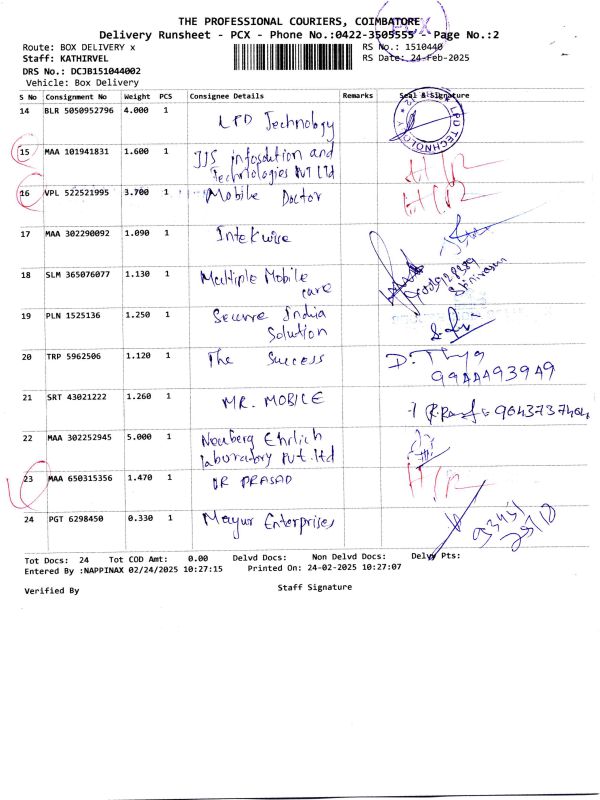 THE PROFESSIONAL COURIERS, COIMBATORE
Delivery Runsheet - PCX - Phone No.:0422-3505555 - Page No.:2
Route: BOX DELIVERY x
RS No.: 1510440
Staff: KATHIRVEL
RS Date: 24-Feb-2025
DRS No.: DCJB151044002
Vehicle: Box Delivery
S No Consignment No Weight PCS Consignee Details Remarks Seal & Signature
14 BLR 5050952796 4.000 1 LPD Technology
LPD TECHNOLOGY
15 MAA 101941831 1.600 1 JJS infosolution and
Technologies Pvt Ltd
16 VPL 522521995 3.700 1 Mobile Doctor
17 MAA 302290092 1.090 1 Intekwise
18 SLM 365076077 1.130 1 Multiple Mobile
care
Srinivasan
19 PLN 1525136 1.250 1 Secure India
Solution
20 TRP 5962506 1.120 1 The Success
9944493949
21 SRT 43021222 1.260 1 MR. MOBILE
22 MAA 302252945 5.000 1 Neuberg Ehrlich
laboratory Pvt.ltd
23 MAA 650315356 1.470 1 DR PRASAD
24 PGT 6298450 0.330 1 Mayur Enterprises
Tot Docs: 24 Tot COD Amt: 0.00 Delvd Docs: Non Delvd Docs: Delvy Pts:
Entered By :NAPPINAX 02/24/2025 10:27:15 Printed On: 24-02-2025 10:27:07
Staff Signature
Verified By